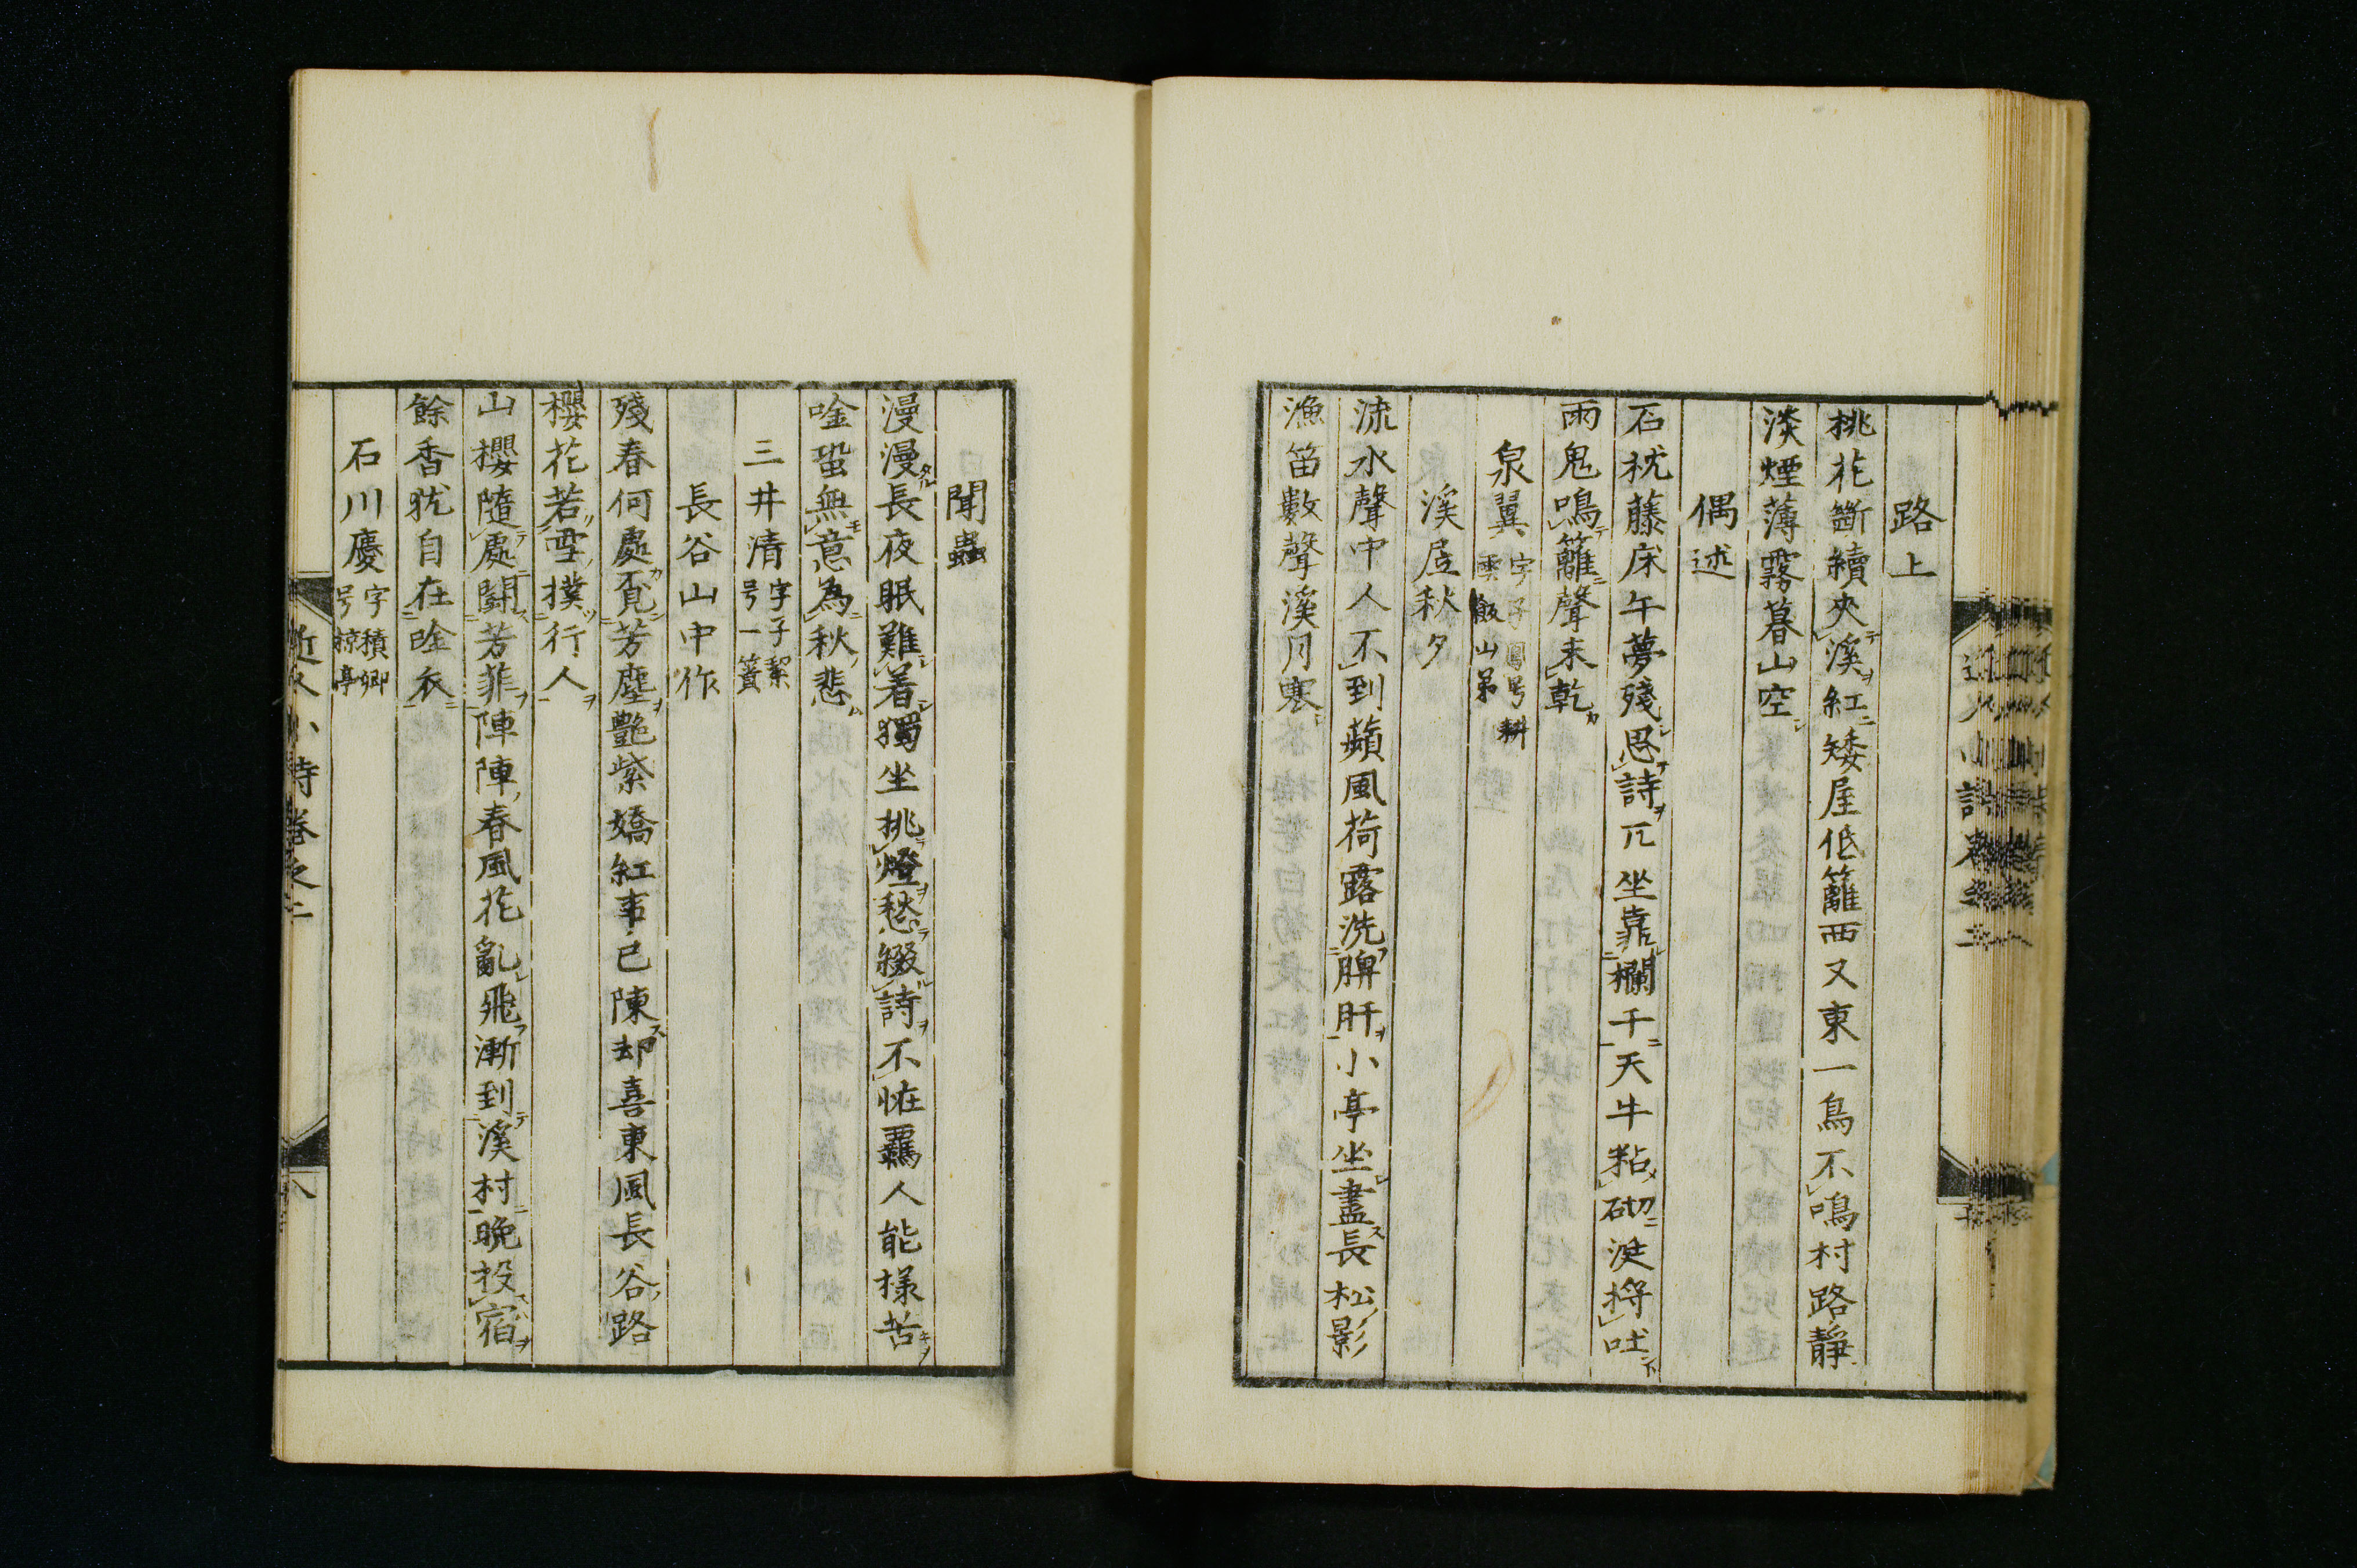 路上
桃花斷續夾溪紅矮屋低籬西又東一鳥不鳴村路靜
淡煙薄霧暮山空
偶述
石枕藤床午夢殘思詩兀坐靠欄干天牛粘砌涎捋吐
雨鬼鳴籬聲未乾
泉翼 字子 号耕
雲飯山弟
溪居秋夕
流水聲中人不到蘋風荷露洗脾肝小亭坐盡長松影
漁笛數聲溪月寒
聞蟲
漫漫長夜眠難着獨坐挑燈愁綴詩不恠羈人能様苦
唫蛩無意為秋悲
三井清 字子絜
号一簣
長谷山中作
殘春何處覓芳塵艶紫嬌紅事已陳却喜東風長谷路
櫻花若雪撲行人
山櫻隨處鬪芳菲陣陣春風花亂飛漸到溪村晩投宿
餘香猶自在唫衣
石川慶 字積卿
号椋亭
近人小詩卷之二
八